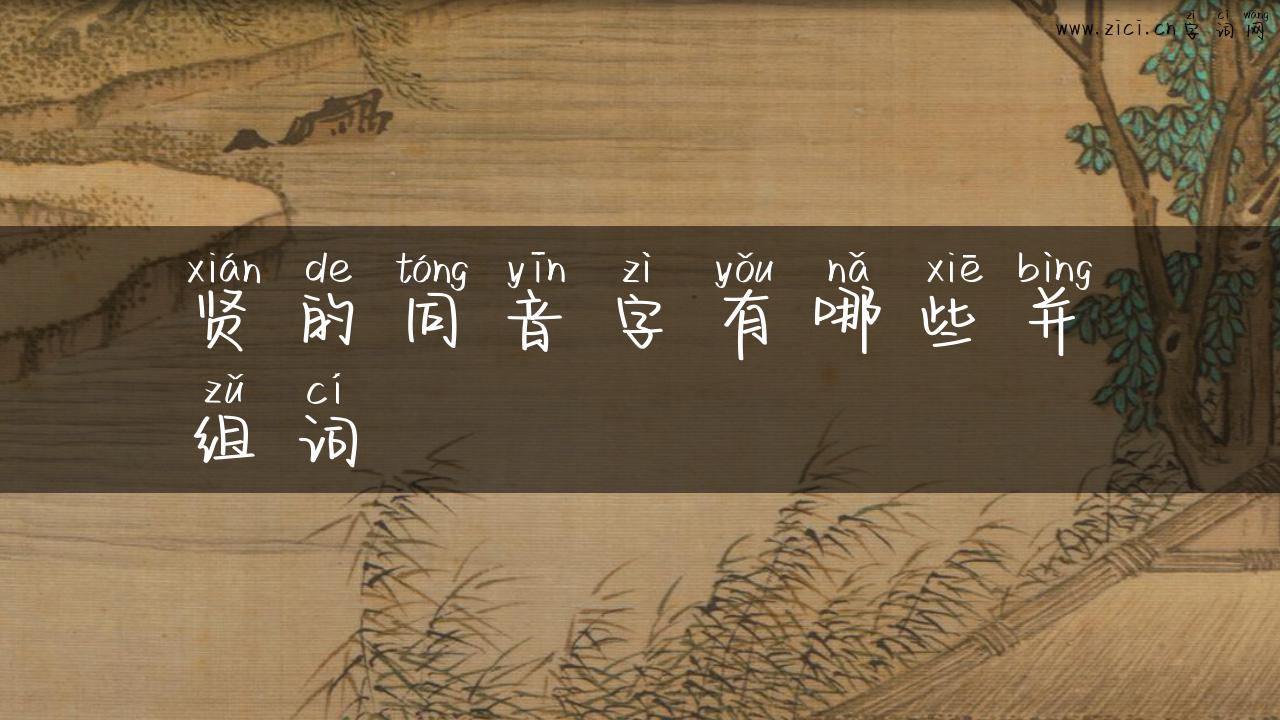 zì cí wǎng
www.zici.cn字词网
xián de tóng yīn zì yǒu nǎ xiē bìng
贤的同音字有哪些并
zǔ cí
组词